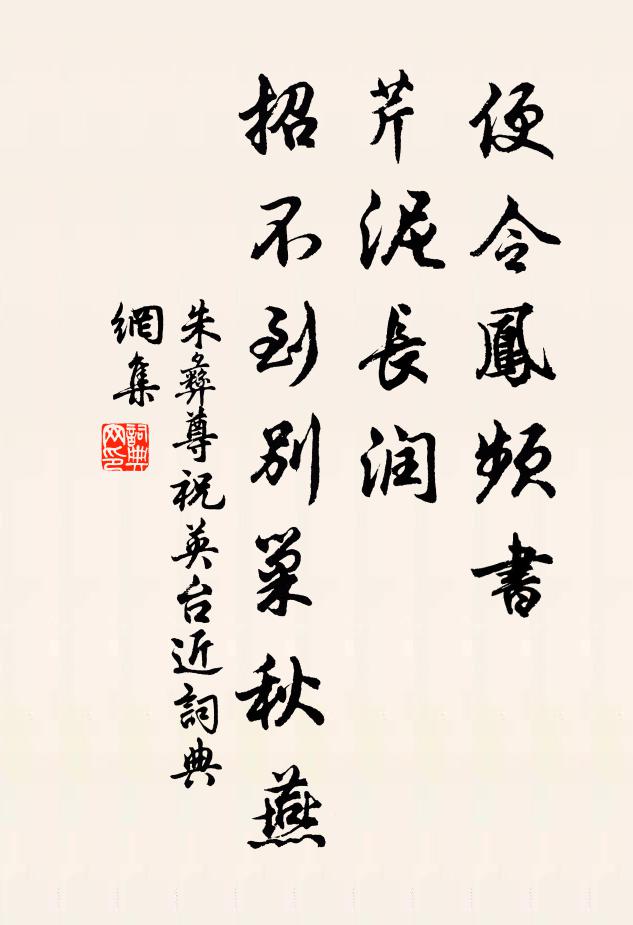 便令鳳頻書
芹泥長润
招不到別巢秋燕
朱彝尊祝英台近詞典
網集
詞典
网印